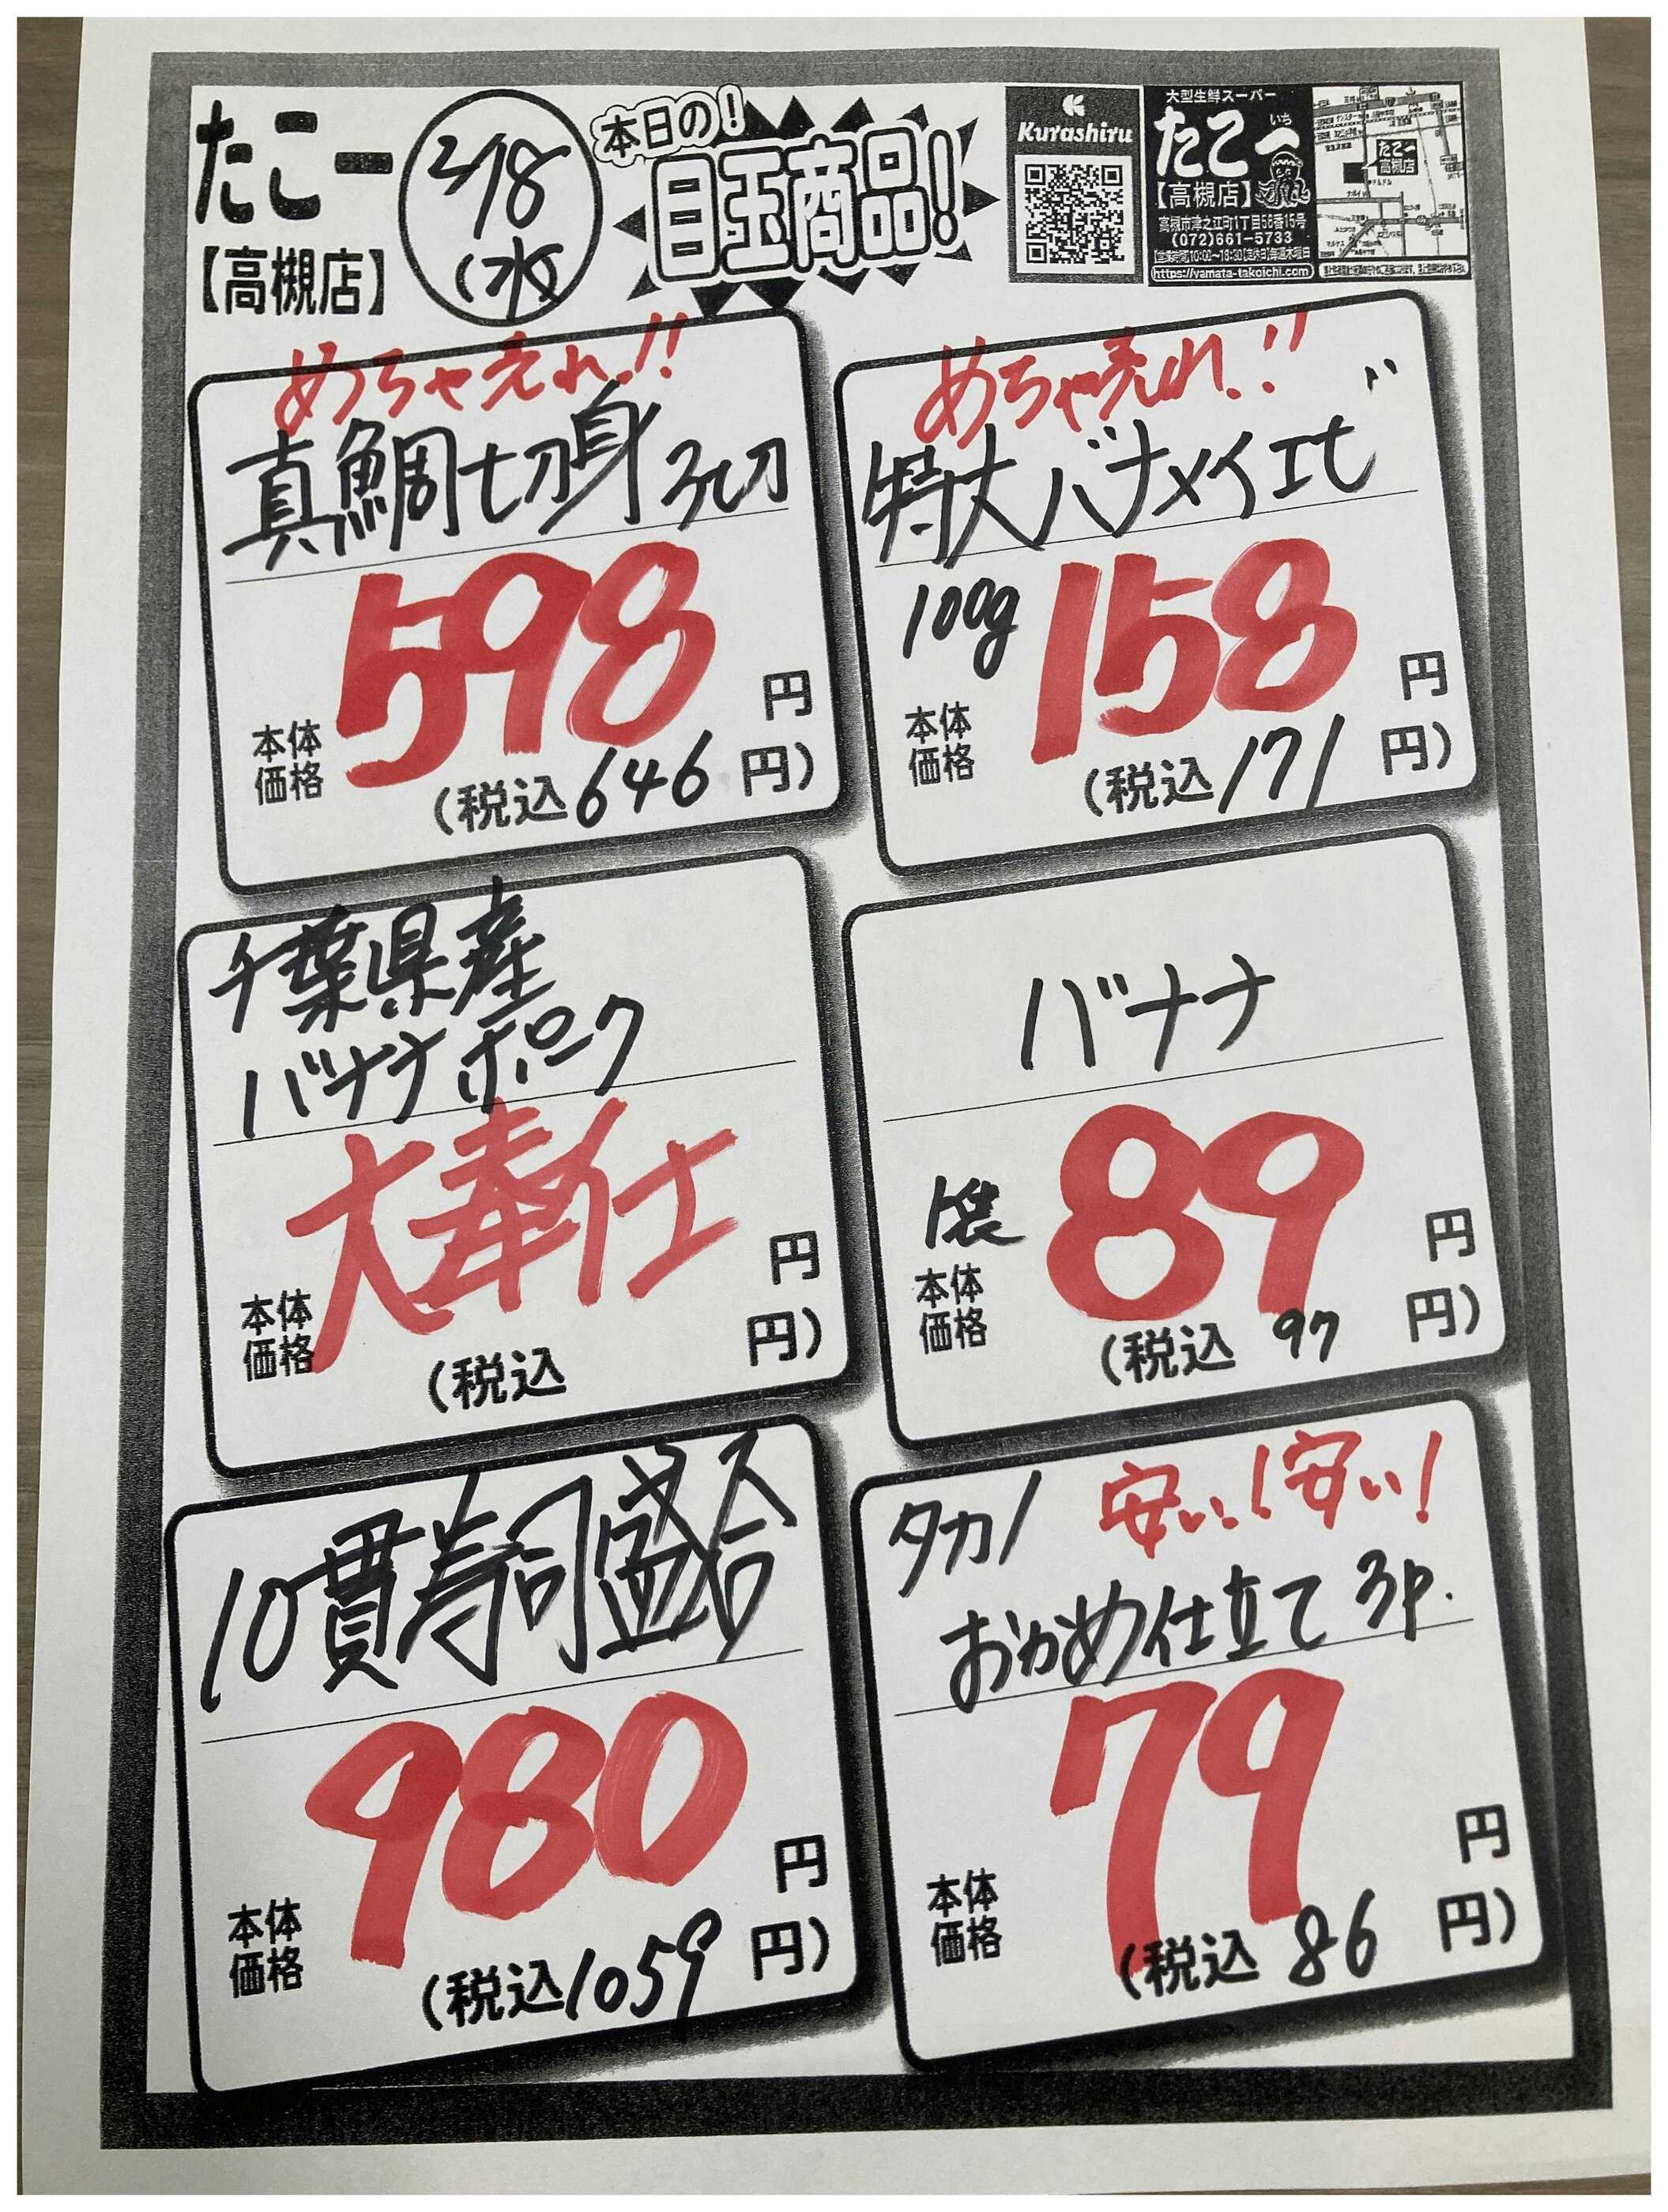 たこ一
【高槻店】
2/18
(水)
本日の!
目玉商品!
Kurashiru
大型生鮮スーパー
たこ一
いち
【高槻店】
高槻市津之江町1丁目56番15号
(072)661-5733
【営業時間】10:00~18:30【定休日】毎週木曜日
https://yamata-takoichi.com
たこ一
高槻店
めちゃ売れ!!
真鯛切身 3切
598
円
本体
価格
(税込646円)
めちゃ売れ!!
特大バナメイエビ
100g
158
円
本体
価格
(税込171円)
千葉県産
バナナポーク
大奉仕
円
本体
価格
(税込 円)
バナナ
1袋
89
円
本体
価格
(税込 97円)
10貫寿司盛合
980
円
本体
価格
(税込1059円)
タカノ 安い!安い!
おかめ仕立て 3P.
79
円
本体
価格
(税込 86円)